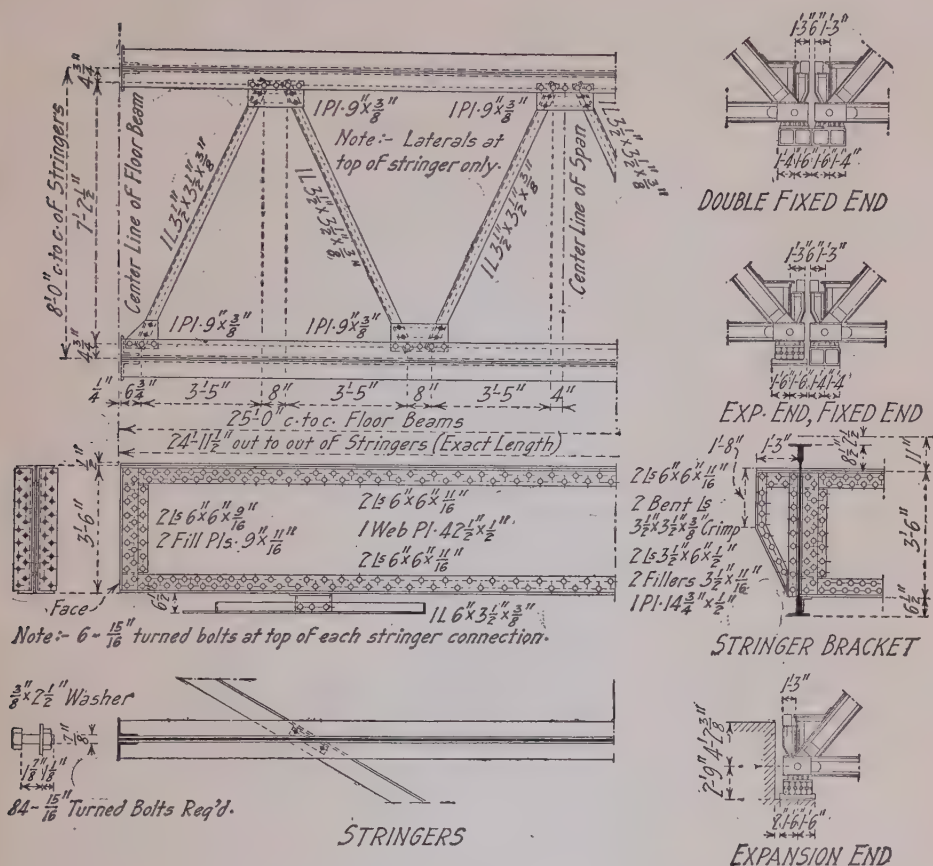 4 3/4"
8'-0" c. to c. of Stringers
7'-2 1/2"
4 3/4"
Center Line of Floor Beam
1 Pl. 9" x 3/8"
1 Pl. 9" x 3/8"
Note:- Laterals at
top of stringer only.
1L 3 1/2" x 3 1/2" x 3/8"
1L 3 1/2" x 3 1/2" x 3/8"
1L 3 1/2" x 3 1/2" x 3/8"
1L 3 1/2" x 3 1/2" x 3/8"
Center Line of Span
1 Pl. 9" x 3/8"
1 Pl. 9" x 3/8"
1/4" 6 3/4" 3'-5" 8" 3'-5" 8" 3'-5" 4"
25'-0" c. to c. Floor Beams
24'-11 1/2" out to out of Stringers (Exact Length)
1/2"
3'-6"
2 Ls 6" x 6" x 9/16"
2 Fill Pls. 9" x 11/16"
2 Ls 6" x 6" x 11/16"
1 Web Pl. 42 1/2" x 1/2"
2 Ls 6" x 6" x 11/16"
Face
6 1/2"
1L 6" x 3 1/2" x 3/8"
Note:- 6 - 15/16" turned bolts at top of each stringer connection.
3/8" x 2 1/2" Washer
7/8"
1 7/8" 1 1/8"
84 - 15/16" Turned Bolts Req'd.
STRINGERS
1'-3" 6" 1'-3"
1'-4" 1'-6" 1'-6" 1'-4"
DOUBLE FIXED END
1'-3" 6" 1'-3"
1'-6" 1'-6" 1'-4" 1'-4"
EXP. END, FIXED END
1'-8" 1'-3"
11"
2 Ls 6" x 6" x 11/16"
2 Bent Ls
3 1/2" x 3 1/2" x 3/8" Crimp
2 Ls 3 1/2" x 6" x 1/2"
2 Fillers 3 1/2" x 11/16"
1 Pl. 14 3/4" x 1/2"
3'-6"
6 1/2"
STRINGER BRACKET
1'-3"
4'-7 3/8"
2'-9"
2" 1'-6" 1'-6"
EXPANSION END